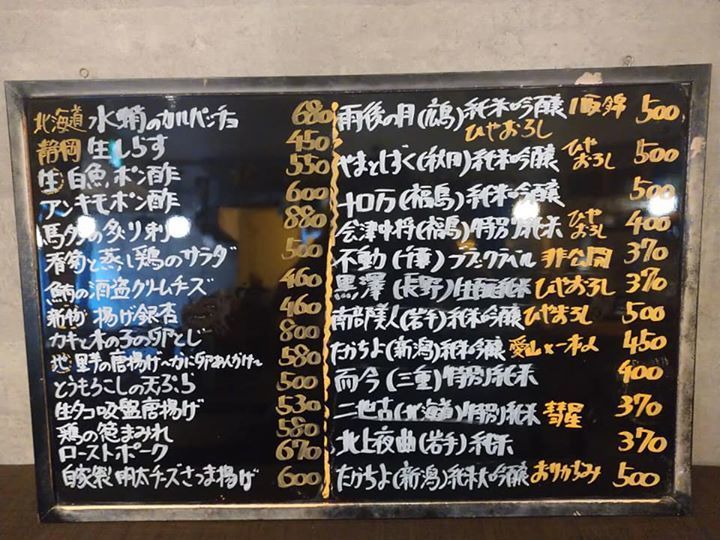 北海道 水蛸のカルパッチョ 680
静岡 生しらす 450
生 白魚ポン酢 550
アンキモポン酢 600
馬タンの炙り刺 880
春菊と蒸し鶏のサラダ 500
酒盗クリームチーズ 460
新物 揚げ銀杏 460
カキと木の子の卵とじ 800
地 里芋の唐揚げ〜かに卵あんかけ〜 580
とうもろこしの天ぷら 500
生タコ吸盤唐揚げ 530
鶏の葱まみれ 580
ローストポーク 670
自家製 明太チーズさつま揚げ 600
雨後の月(広島)純米吟醸 八反錦 500
ひやおろし
やまとしずく(秋田)純米吟醸 ひやおろし 500
十ロ万(福島)純米吟醸 500
会津中将(福島)特別純米 ひやおろし 400
不動(千葉)ブラックラベル 非公開 370
黒澤(長野)生酛純米 ひやおろし 370
南部美人(岩手)純米吟醸 ひやおろし 500
たかちよ(新潟)純米吟醸 愛山×一本〆 450
而今(三重)特別純米 400
二世古(北海道)特別純米 彗星 370
北上夜曲(岩手)純米 370
たかちよ(新潟)純米大吟醸 おりがらみ 500